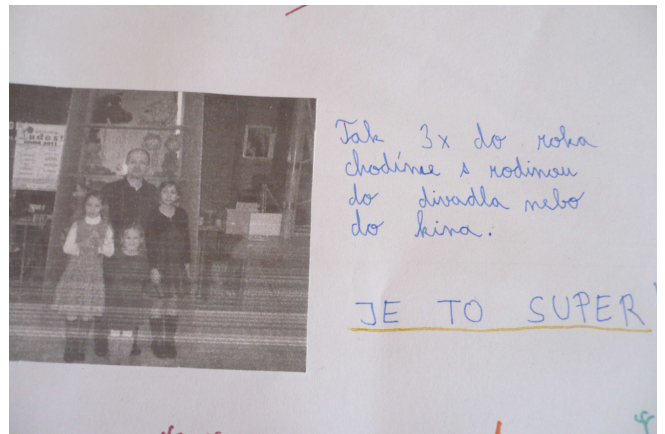 Tak 3x do roka
chodíme s rodinou
do divadla nebo
do kina.
JE TO SUPER!